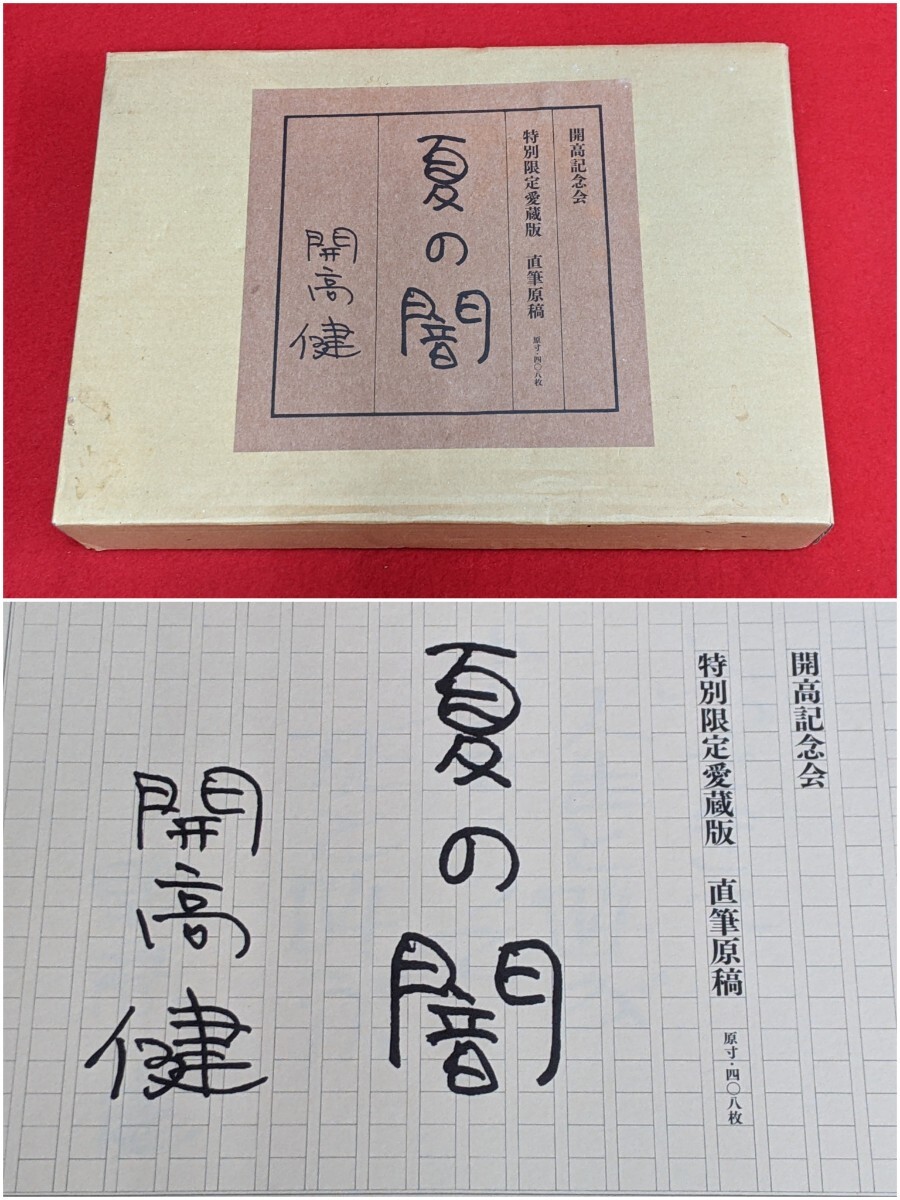 開高記念会
特別限定愛蔵版 直筆原稿 原寸・四〇八枚
夏の闇
開高健
開高記念会
特別限定愛蔵版 直筆原稿 原寸・四〇八枚
夏の闇
開高健